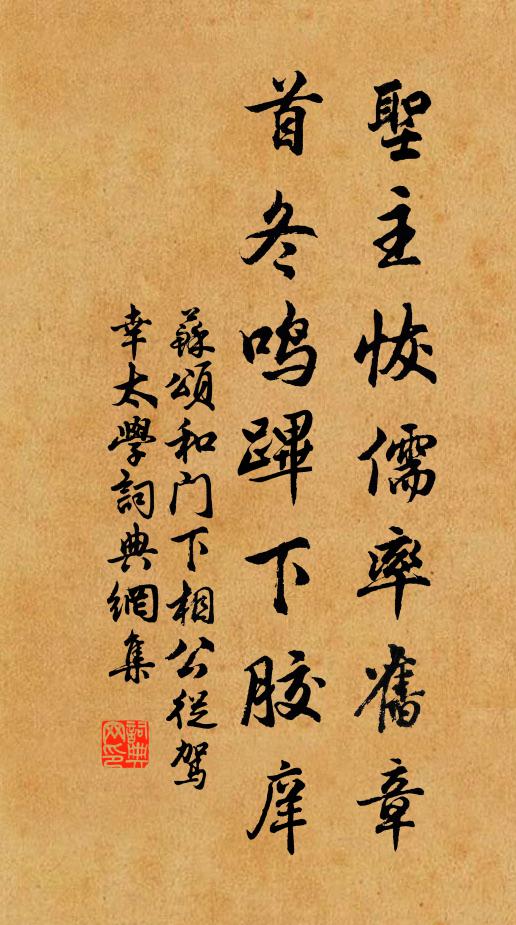 聖主恢儒率舊章
首冬鳴蹕下膠庠
蘇頌和门下相公從駕
幸太學詞典網集
詞典
网印